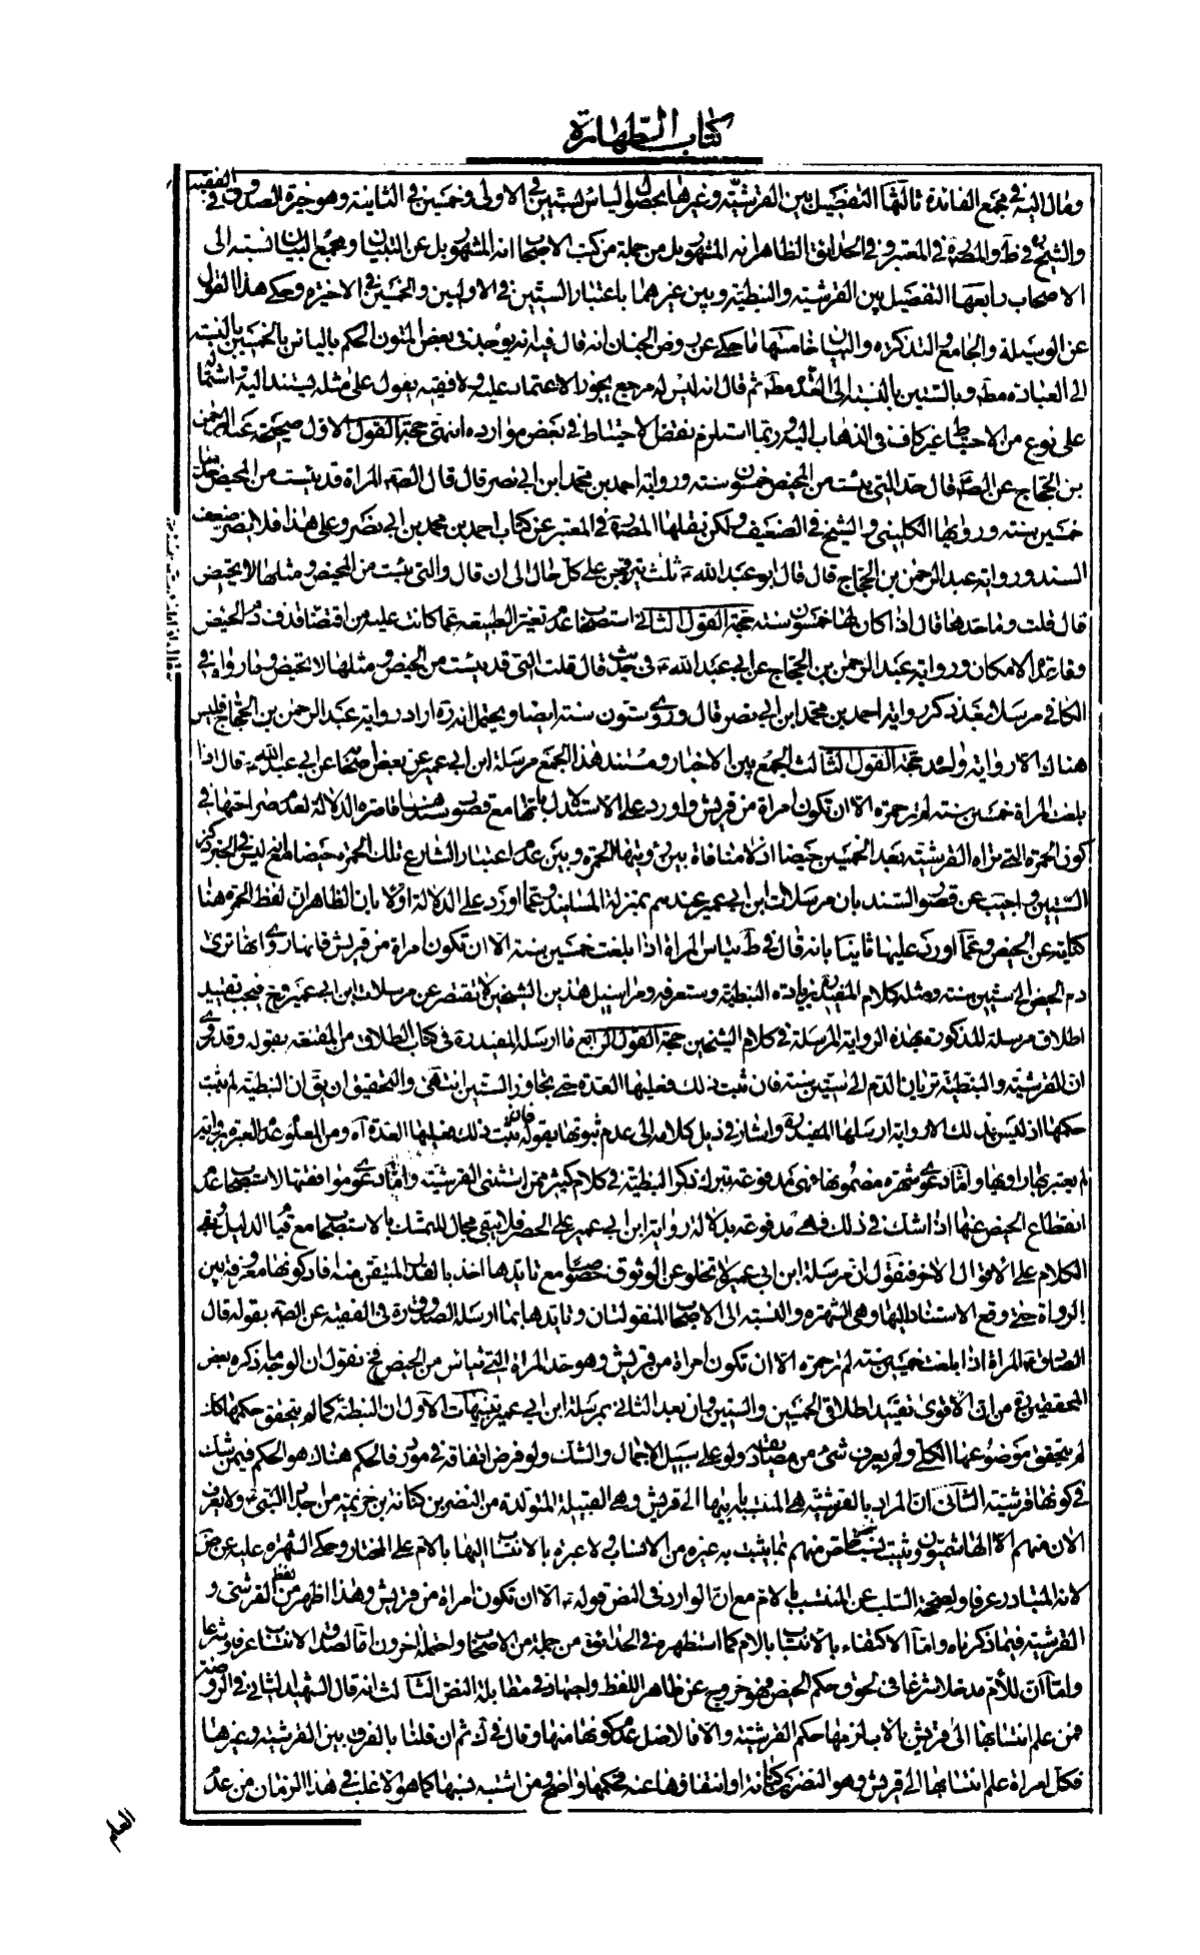 كتاب الطهارة
ومال اليه في مجمع الفائدة ثالثها التفصيل بين القرشيّة وغيرها بحصول الياس بستين في الاولى وخمسين في الثانية وهو خيرة الصدوق في الفقيه
والشيخ في ط والمص في المعتبر وفي الحدائق الظاهر انه المشهور بل من جملة من كتب الاصحاب انه المشهور بل عن التبيان ومجمع البيان نسبته الى
الاصحاب رابعها التفصيل بين القرشية والنبطية وبين غيرهما باعتبار الستين في الاوليين والخمسين في الاخيرة وحكى هذا القول
عن الوسيلة والجامع والتذكرة والبيان خامسها ما حكى عن روض الجنان انه قال فيه انه يوجد في بعض المتون الحكم بالياس بالخمسين بالنسبة
الى العبادة مطلقا وبالستين بالنسبة الى العدة مط ثم قال انه ليس له مرجع يجوز الاعتماد عليه ولا فقيه يقول على مثله يستند اليه واشتماله
على نوع من الاحتياط غير كاف في الذهاب اليه وربما استلزم نقض الاحتياط في بعض موارده انتهى حجة القول الاول صحيحة عبد الرحمن
بن الحجاج عن الص قال حد التي يئست من المحيض خمسون سنة ورواية احمد بن محمد ابن ابي نصر قال قال الص المراة قد يئست من المحيض حدها
خمسين سنة ورواها الكليني والشيخ في الضعيف ولكن نقلها المص في المعتبر عن كتاب احمد بن محمد بن ابي نصر وعلى هذا فلا يضر ضعف
السند ورواية عبد الرحمن بن الحجاج قال قال ابو عبد الله ع ثلث يتزوجن على كل حال الى ان قال والتي يئست من المحيض ومثلها لا تحيض
قال قلت وما حدها قال اذا كان لها خمسون سنة حجة القول الثاني استصحاب عدم تغير الطبيعة عما كانت عليه من اقتضاء قذف دم الحيض
وقاعدة الامكان ورواية عبد الرحمن بن الحجاج عن ابي عبد الله ع في حديث قال قلت التي قد يئست من الحيض ومثلها لا تحيض وما رواه في
الكافي مرسلا بعد ذكر رواية احمد بن محمد ابن ابي نصر قال وروى ستون سنة ايضا ويحتمل انه ره اراد رواية عبد الرحمن بن الحجاج فليس
هناك الا رواية واحدة حجة القول الثالث الجمع بين الاخبار ومستند هذا الجمع مرسلة ابن ابي عمير عن بعض اصحابنا عن ابي عبد الله ع قال اذا
بلغت المراة خمسين سنة لم تر حمرة الا ان تكون امراة من قريش واورد على الاستدلال بها مع قصور سندها قاصرة الدلالة لعدم صراحتها في
كون الحمرة التي تراه القرشية بعد الخمسين حيضا اذ لا منافاة بين رؤيتها الحمرة وبين عدم اعتبار الشارع تلك الحمرة حيضا مع انه ليس في الخبر ذكر
الستين واجيب عن قصور السند بان مرسلات ابن ابي عمير عندهم بمنزلة المسانيد وعما اورد على الدلالة اولا بان الظاهر ان لفظ الحمرة هنا
كناية عن الحيض وعما اورد عليها ثانيا بانه قال في ط تياس المراة اذا بلغت خمسين سنة الا ان تكون امراة من قريش فانها روى انها ترى
دم الحيض الى ستين سنة ومثله كلام المفيد بزيادة النبطية وستعرفه ومراسيل هذين الشيخين لا تقتصر عن مرسلات ابن ابي عمير وح فيجب تقييد
اطلاق مرسلة المذكورة بهذه الرواية المرسلة في كلام الشيخين حجة القول الرابع ما ارسله المفيد ره في كتاب الطلاق من المقنعة بقوله وقد روى
ان القرشية والنبطية تريان الدم الى ستين سنة فان ثبت ذلك فعليها العدة حتى تجاوز الستين انتهى والتحقيق ان يق ان النبطية لم يثبت
حكمها اذ ليس بذلك الا رواية ارسلها المفيد ره واشار في ذيل كلامه الى عدم ثبوتها بقوله فان ثبت ذلك فعليها العدة اه ومن المعلوم عدم العبرة برواية
لم يعتبر بها راويها واما دعوى شهرة مضمونها فهي مدفوعة بترك ذكر النبطية في كلام كثير ممن استثنى القرشية واما دعوى موافقتها لاستصحاب عدم
انقطاع الحيض عنها اذا شك في ذلك فهي مدفوعة بدلالة رواية ابن ابي عمير على الحصر فلا يبقى مجال للتمسك بالاستصحاب مع قيام الدليل وبقى
الكلام على الاقوال الاخر فنقول ان مرسلة ابن ابي عمير لا تخلو عن الوثوق خصوصا مع تايدها اخذ بالقدر المتيقن منه افاد كونها معروفة بين
الرواة حتى وقع الاستناد اليها وهي الشهرة والنسبة الى الاصحاب المنقولتان وتايدها بما ارسله الصدوق ره في الفقيه عن الص بقوله قال
الصادق ع المراة اذا بلغت خمسين سنة لم تر حمرة الا ان تكون امراة من قريش وهو حد المراة التي تياس من الحيض فح نقول ان الوجه ما ذكره بعض
المحققين ره من ان الاقوى تقييد اطلاق الخمسين والستين وان بعد الثاني بمرسلة ابن ابي عمير تنبيهات الاول ان النبطية كما لم يتحقق حكمها كك
لم يتحقق موضوعها الكلي ولم يعرف شئ من مصاديقه ولو على سبيل الاجمال والشك ولو فرض اتفاقه في مورد فالحكم هناك هو الحكم فيمن شك
في كونها قرشية الثاني ان المراد بالقرشية هي المنتسبة بابيها الى قريش وهي القبيلة المتولدة من النضر بن كنانة بن خزيمة من اجداد النبي ص ولا يعرف
الان منهم الا الهاشميون ويثبت انتساب شخص منهم بما يثبت به غيره من الانساب ولا عبرة بالانتساب اليها بالام على المختار وحكى الشهرة عليه عن ض
لانه المتبادر عرفا ولصحة السلب عن المنتسب بالام مع ان الوارد في النص قوله ع الا ان تكون امراة من قريش وهذا اظهر من لفظ القرشي و
القرشية فيما ذكرناه واما الاكتفاء بالانتساب بالام كما استظهره في الحدائق من جملة من الاصحاب واحتمله اخرون اما لصدق الانتساب عرفا وشرعا
واما ان للام مدخلا شرعا في لحوق حكم الحيض فهو خروج عن ظاهر اللفظ واجتهاد في مقابلة النص الثالث انه قال الشهيد الثاني في الروضة
فمن علم انتسابها الى قريش بالاب لزمها حكم القرشية والا فالاصل عدم كونها منها وقال في لك ثم ان قلنا بالفرق بين القرشية وغيرها
فكل امراة علم انتسابها الى قريش وهو النضر بن كنانة او انتفاؤها عنه فحكمها واضح ومن اشتبه نسبها كما هو الاغلب في هذا الزمان من عدم
العلم